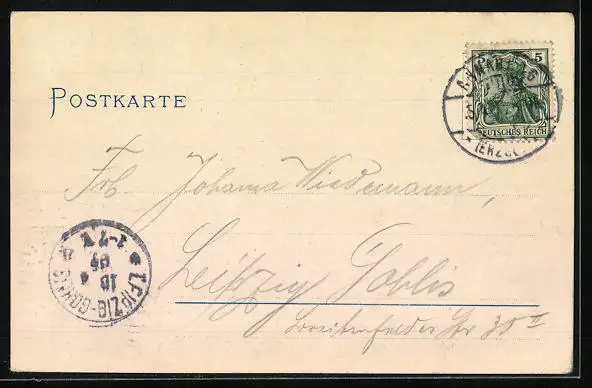 POSTKARTE
5
DEUTSCHES REICH
(ERZGEB
Frl. Johanna Wiedemann,
Leipzig Gohlis
Breitenfelder Str 30 II
LEIPZIG-GOHLIS
1-7 V
10 4
05